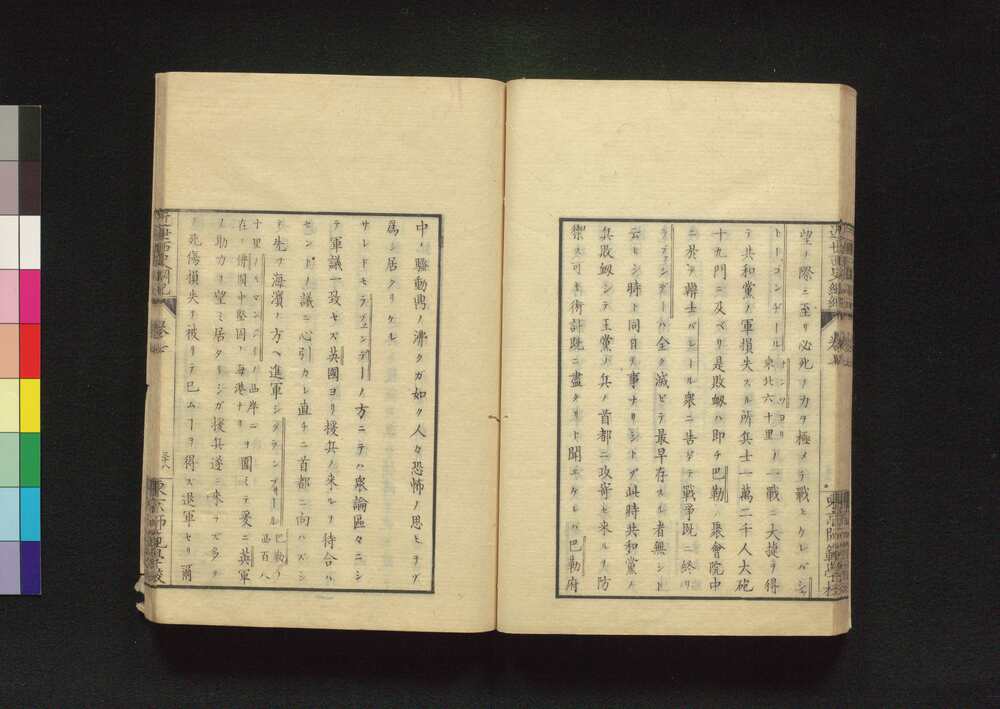 望ノ際ニ至リ必死ノ力ヲ極メテ戰ヒケレバシャ
トーゴンヂール
ナンツヨリ
東北六十里
ノ一戰ニ大捷ヲ得
テ共和黨ノ軍損失スル所兵士一萬二千人大砲
十九門ニ及ベリ是敗衂ハ即チ巴勒ノ聚會院中
ニ於テ辯士バレール衆ニ告ゲテ戰爭既ニ終リ
ラヴァンデーハ全ク滅ビテ最早存スル者無シト
云ヒシ時ト同日ノ事ナリシトゾ此時共和黨ノ
兵敗衂シテ王黨ノ兵ノ首都ニ攻寄セ來ルヲ防
禦ス可キ術計既ニ盡タリト聞エケレバ巴勒府
中ノ騷動鼎ノ沸クガ如ク人々恐怖ノ思ヒヲゾ
爲シ居タリケル
サレドモラヴァンデーノ方ニテハ衆論區々ニシ
テ軍議一致セズ英國ヨリ援兵ノ來ルヲ待合ハ
セントノ議ニ心引カレ直チニ首都ニ向ハズシ
テ先ヅ海濱ノ方ヘ進軍シグランフォール
巴勒ノ
西百八
十里ノルマンヂーノ西岸ニ
在リ佛國中堅固ノ海港ナリ
ヲ圍ミテ爰ニ英軍
ノ助力ヲ望ミ居タリシガ援兵遂ニ來ラズ多ク
ノ死傷損失ヲ被リテ已ムヿヲ得ズ退軍セリ爾
卷七
東京師範學校